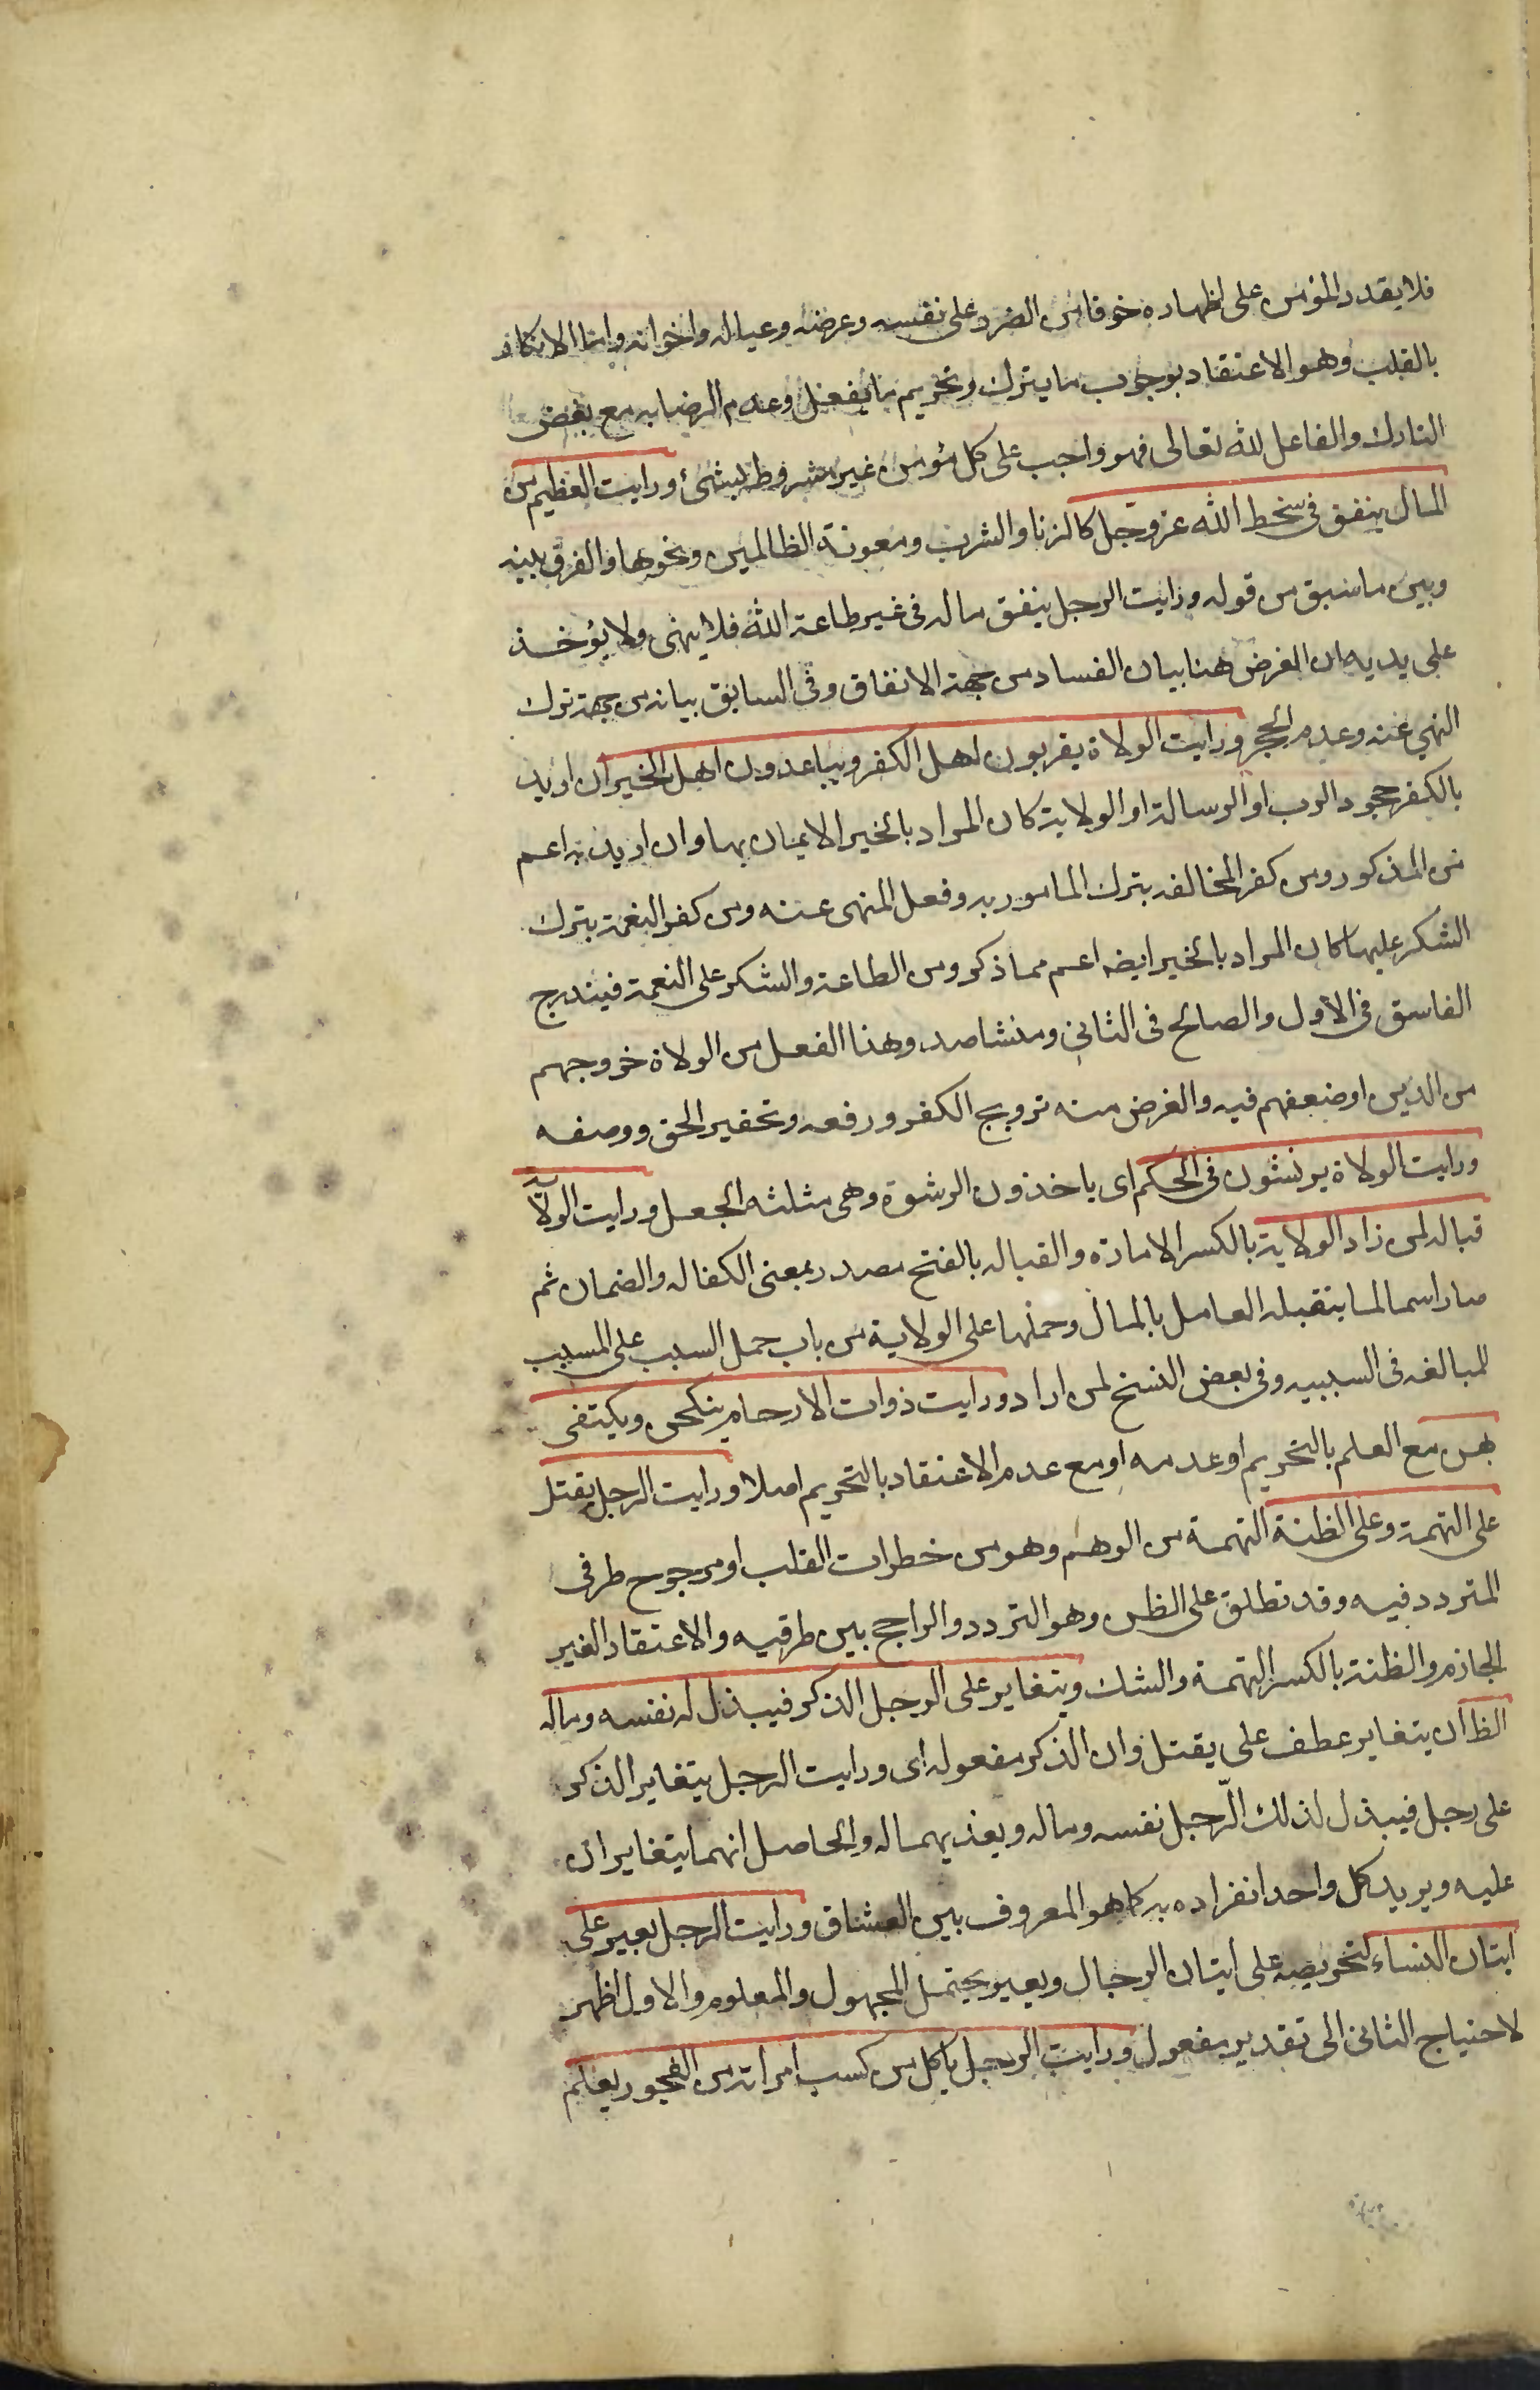 فلا يقدر المؤمن على اظهاره خوفا من الضرر على نفسه وعرضه وعياله واخوانه واما الانكار
بالقلب وهو الاعتقاد بوجوب ما يترك وتحريم ما يفعل وعدم الرضا به مع بغض
التارك والفاعل لله تعالى فهو واجب على كل مؤمن غير مشروط بشئ ورايت العظيم من
المال ينفق فى سخط الله عز وجل كالزنا والشرب ومعونة الظالمين ونحوها والفرق بينه
وبين ما سبق من قوله ورايت الرجل ينفق ماله فى غير طاعة الله فلا ينهى ولا يؤخذ
على يديه ان الغرض هنا بيان الفساد من جهة الانفاق وفى السابق بيانه من جهة ترك
النهي عنه وعدم الحجر ورايت الولاة يقربون اهل الكفر ويباعدون اهل الخير ان اريد
بالكفر جحود الرب او الرسالة او الولاية كان المراد بالخير الايمان بها وان اريد به اعم
من المذكور ومن كفر المخالفه بترك المامور به وفعل المنهى عنه ومن كفر النعمة بترك
الشكر عليها كان المراد بالخير ايضه اعم مما ذكر ومن الطاعة والشكر على النعمة فيندرج
الفاسق فى الأول والصالح فى الثانى ومنشا صدور هذا الفعل من الولاة خروجهم
من الدين او ضعفهم فيه والغرض منه ترويج الكفر ورفعه وتحقير الحق ووصفه
ورايت الولاة يرتشون فى الحكم اى ياخذون الرشوة وهى مثلثه الجعل ورايت الولاية
قباله لمن زاد الولاية بالكسر الامارة والقباله بالفتح مصدر بمعنى الكفاله والضمان ثم
صار اسما لما يتقبله العامل بالمال وحملها على الولاية من باب حمل السبب على المسبب
للمبالغه فى السببيه وفى بعض النسخ لمن اراد ورايت ذوات الارحام ينكحن ويكتفى
بهن مع العلم بالتحريم او عدمه او مع عدم الاعتقاد بالتحريم اصلا ورايت الرجل يقتل
على التهمة وعلى الظنة التهمة من الوهم وهو من خطرات القلب او مرجوح طرفى
المتردد فيه وقد تطلق على الظن وهو التردد والراجح بين طرفيه والاعتقاد الغير
الجازم والظنة بالكسر التهمة والشك ويتغاير على الرجل الذكر فيبذل له نفسه وماله
الظ ان يتغاير عطف على يقتل وان الذكر مفعوله اى ورايت الرجل يتغاير الذكر
على رجل فيبذل لذلك الرّجل نفسه وماله ويفديهما له والحاصل انهما يتغايران
عليه ويريد كل واحد انفراده به كما هو المعروف بين العشاق ورايت الرجل يعير على
اتيان النساء لتحريصه على اتيان الرجال ويعير يحتمل المجهول والمعلوم والاول اظهر
لاحتياج الثانى الى تقدير مفعول ورايت الرجل ياكل من كسب امراته من الفجور يعلم